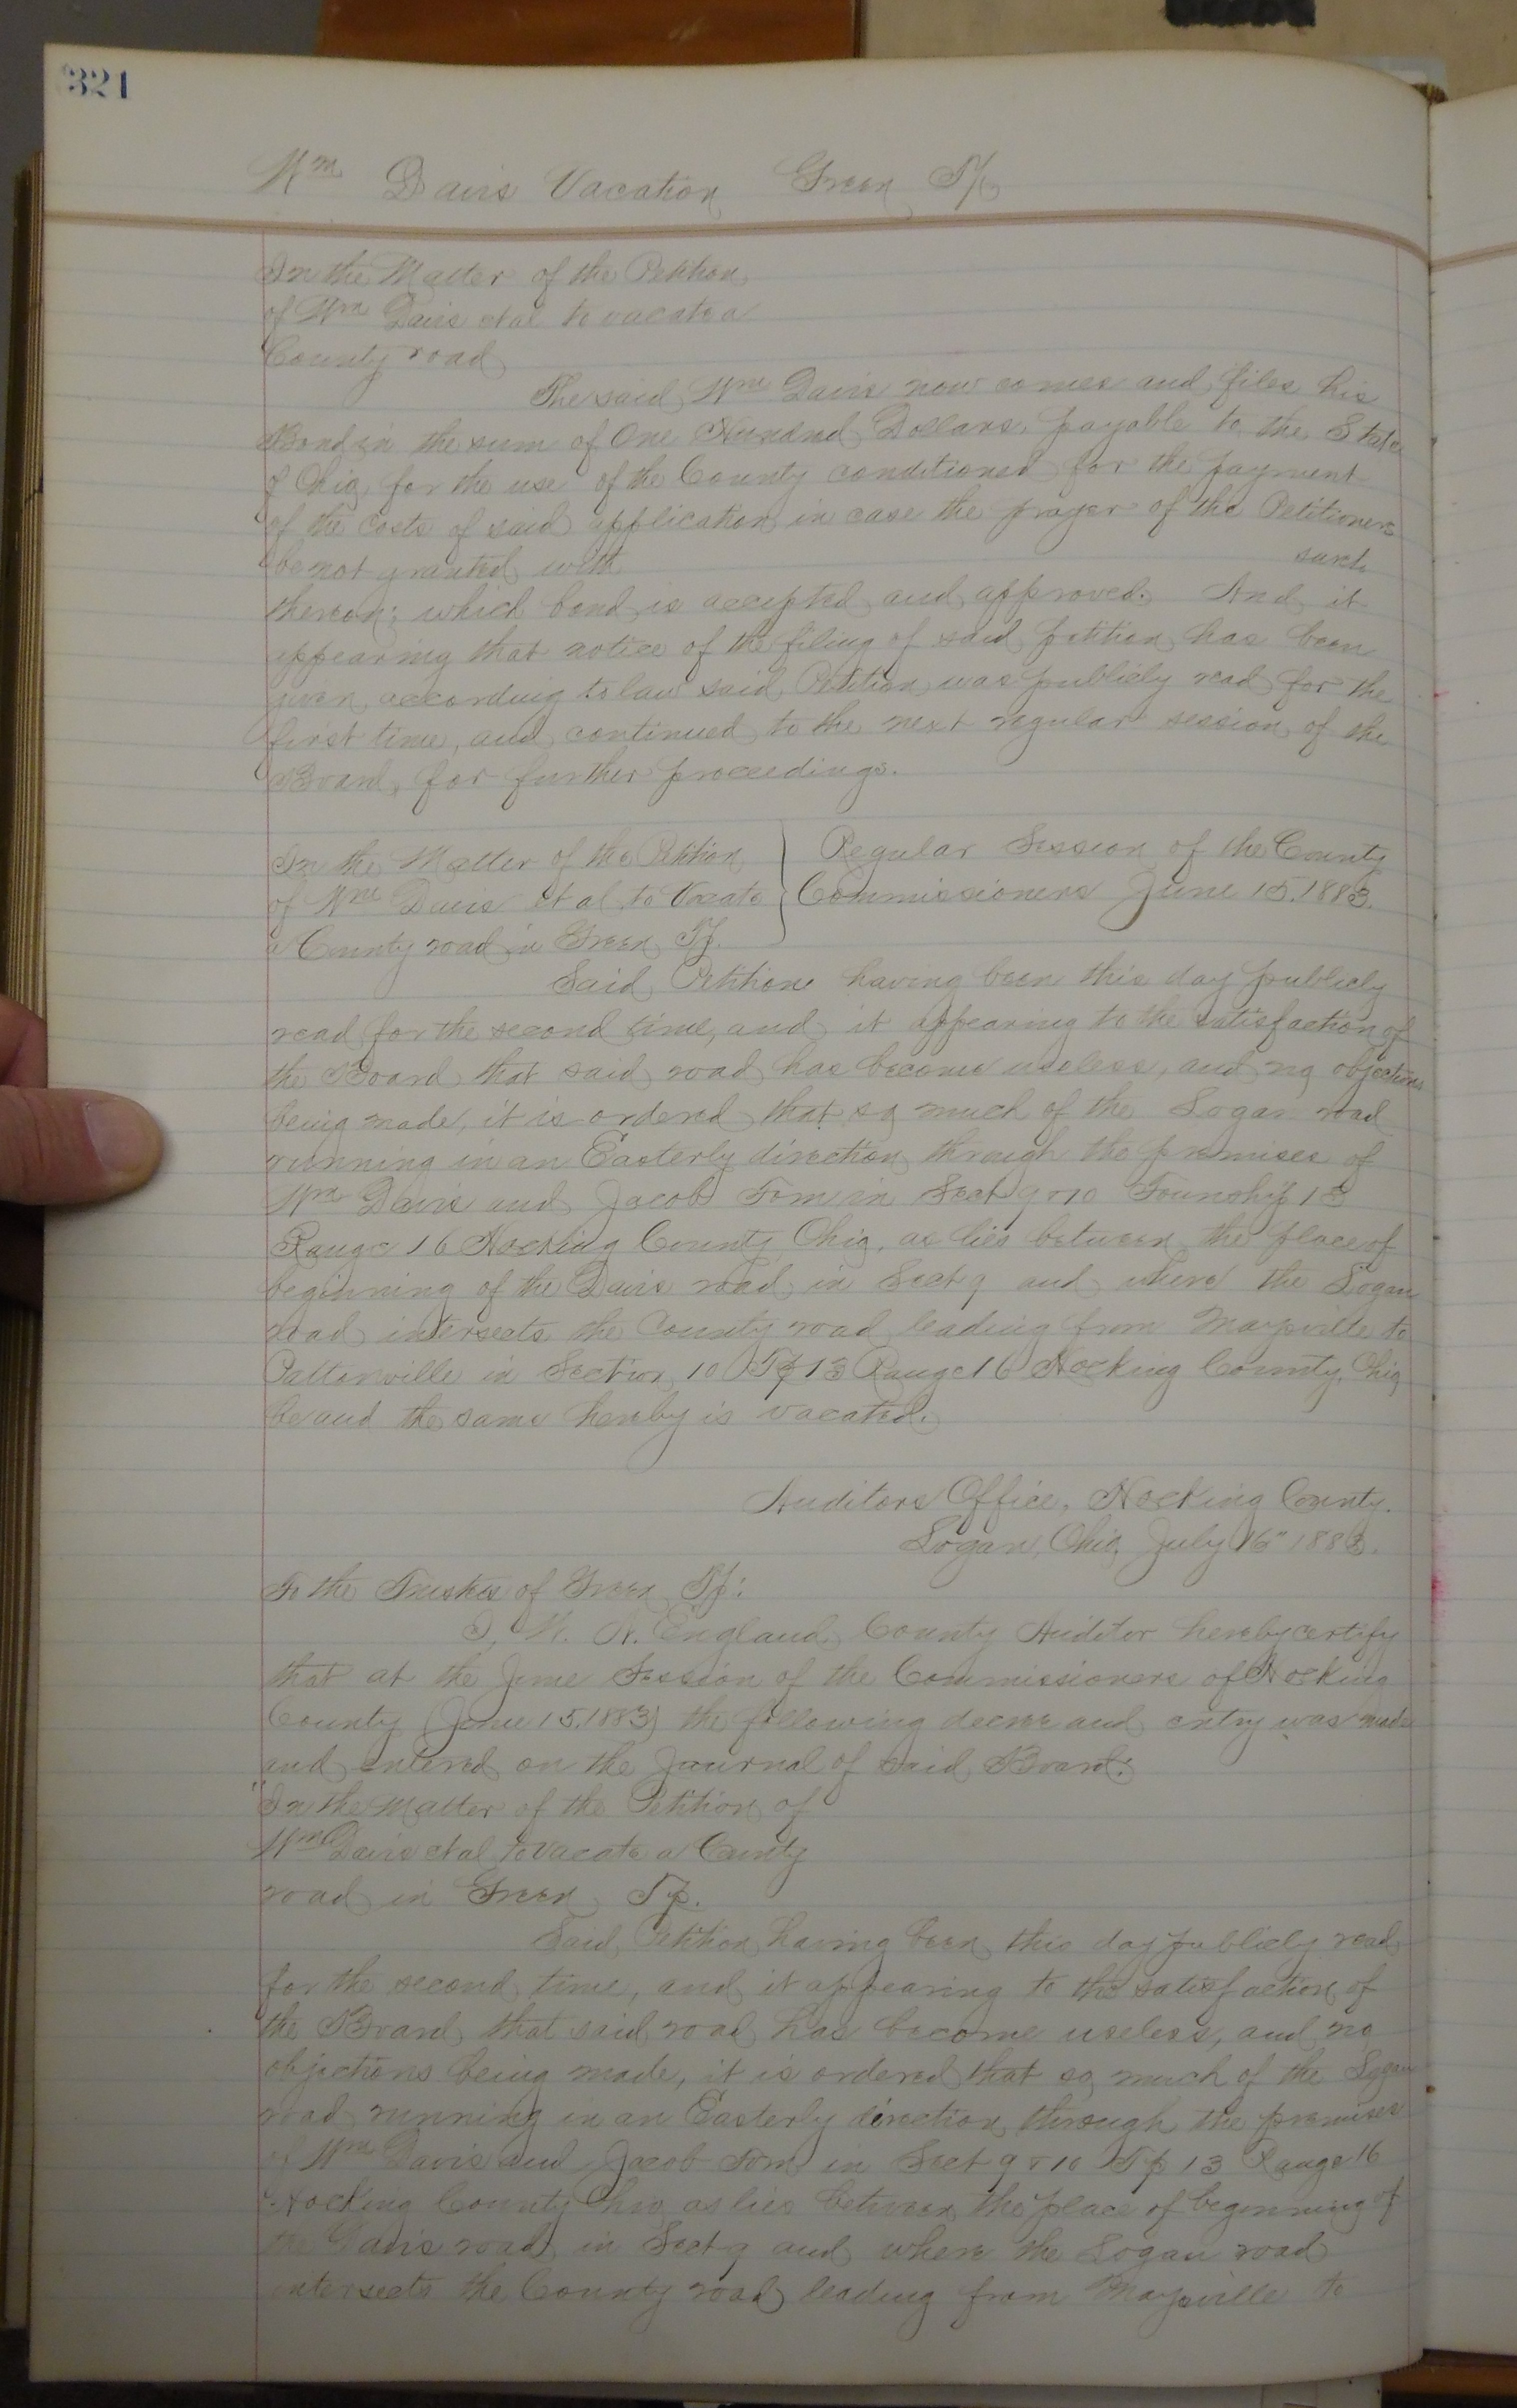 321
Wm Davis Vacation Green Tp
In the Matter of the Petition
of Wm Davis et al to vacate a
County road
The said Wm Davis now comes and files his
Bond in the sum of One Hundred Dollars, payable to the State
of Ohio, for the use of the County conditioned for the payment
of the costs of said application in case the prayer of the Petitioners
be not granted with suret
thereon; which bond is accepted and approved. And it
appearing that notice of the filing of said petition has been
given according to law said Petition was publicly read for the
first time, and continued to the next regular session of the
Board, for further proceedings.
In the Matter of the Petition
of Wm Davis et al to Vacate
a County road in Green Tp.
Regular Session of the County
Commissioners June 15, 1883.
Said Petition having been this day publicly
read for the second time, and it appearing to the satisfaction of
the Board that said road has become useless, and no objections
being made, it is ordered that so much of the Logan road
running in an Easterly direction through the premises of
Wm Davis and Jacob in Sect 9 & 10 Township 13
Range 16 Hocking County Ohio, as lies between the place of
beginning of the Davis road in Sect 9 and where the Logan
road intersects the County road leading from Maysville to
Pattonville in Section 10 Tp 13 Range 16 Hocking County, Ohio
be and the same hereby is vacated.
Auditors Office, Hocking County.
Logan, Ohio, July 16" 1883.
To the Trustees of Green Tp:
I, W. N. England County Auditor hereby certify
that at the June Session of the Commissioners of Hocking
County (June 15, 1883) the following decree and entry was made
and entered on the Journal of said Board:
"In the Matter of the Petition of
Wm Davis et al to vacate a County
road in Green Tp.
Said Petition having been this day publicly read
for the second time, and it appearing to the satisfaction of
the Board that said road has become useless, and no
objections being made, it is ordered that so much of the Logan
road running in an Easterly direction through the premises
of Wm Davis and Jacob in Sect 9 & 10 Tp 13 Range 16
Hocking County Ohio as lies between the place of beginning of
the Davis road in Sect 9 and where the Logan road
intersects the County road leading from Maysville to